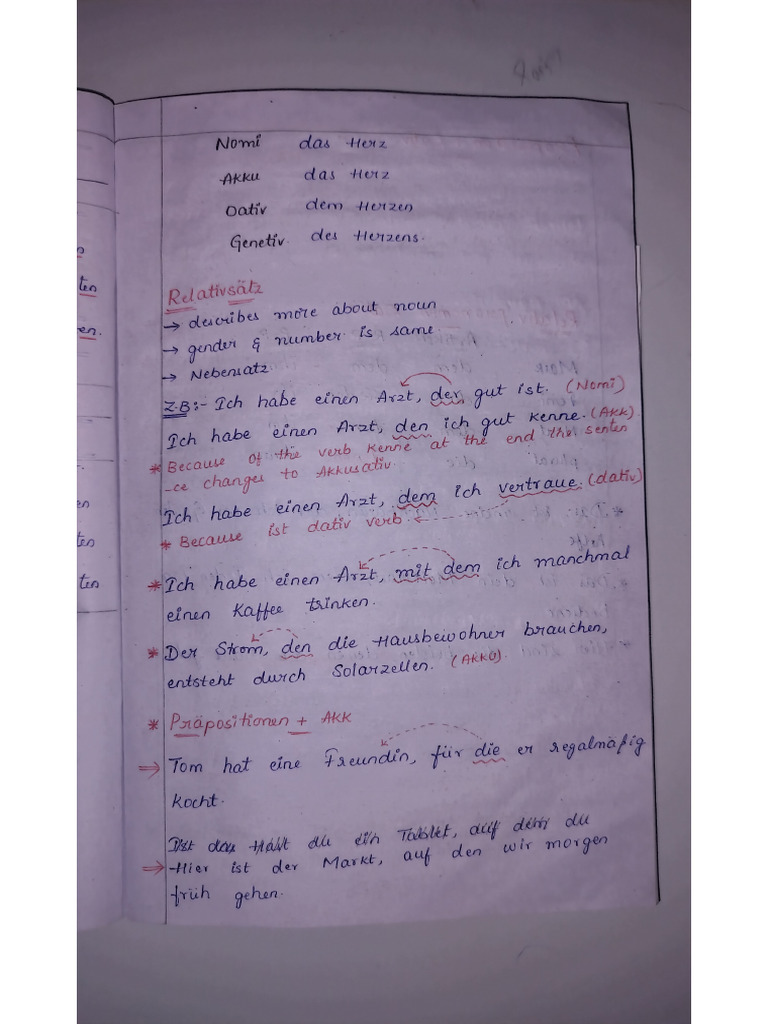 Nomi das Herz
Akku das Herz
Dativ dem Herzen
Genetiv. des Herzens.
ten
en.
Relativsätz
→ describes more about noun
→ gender & number is same.
→ Nebensatz
Z.B:- Ich habe einen Arzt, der gut ist. (Nomi)
Ich habe einen Arzt, den ich gut kenne. (Akk)
* Because of the verb kenne at the end the senten
-ce changes to Akkusativ.
Ich habe einen Arzt, dem ich vertraue. (dativ)
* Because ist dativ verb.
en
ten
ten
* Ich habe einen Arzt, mit dem ich manchmal
einen Kaffee trinken.
* Der Strom, den die Hausbewohner brauchen,
entsteht durch Solarzellen. (Akku).
* Präpositionen + Akk
⇒ Tom hat eine Freundin, für die er regalmäßig
kocht.
du ein Tablet, auf dem du
⇒ Hier ist der Markt, auf den wir morgen
früh gehen.